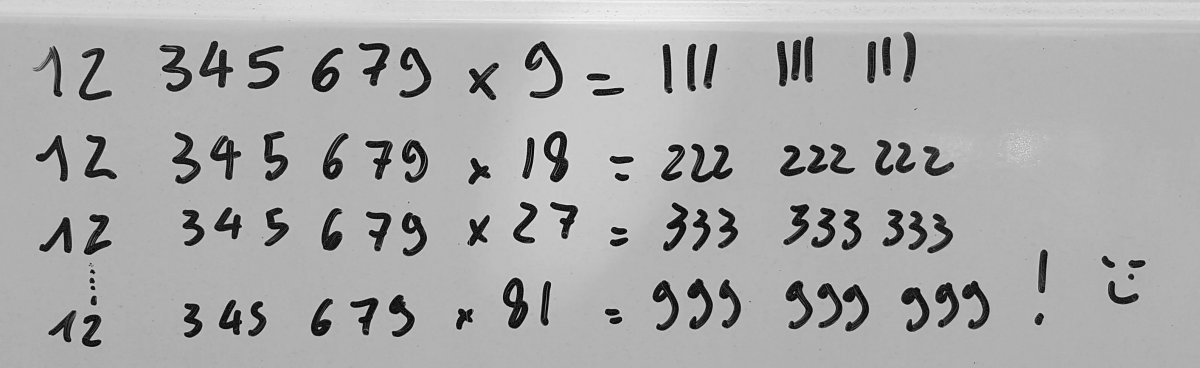 12 345 679 × 9 = 111 111 111
12 345 679 × 18 = 222 222 222
12 345 679 × 27 = 333 333 333
⋮
12 345 679 × 81 = 999 999 999 ! :-)